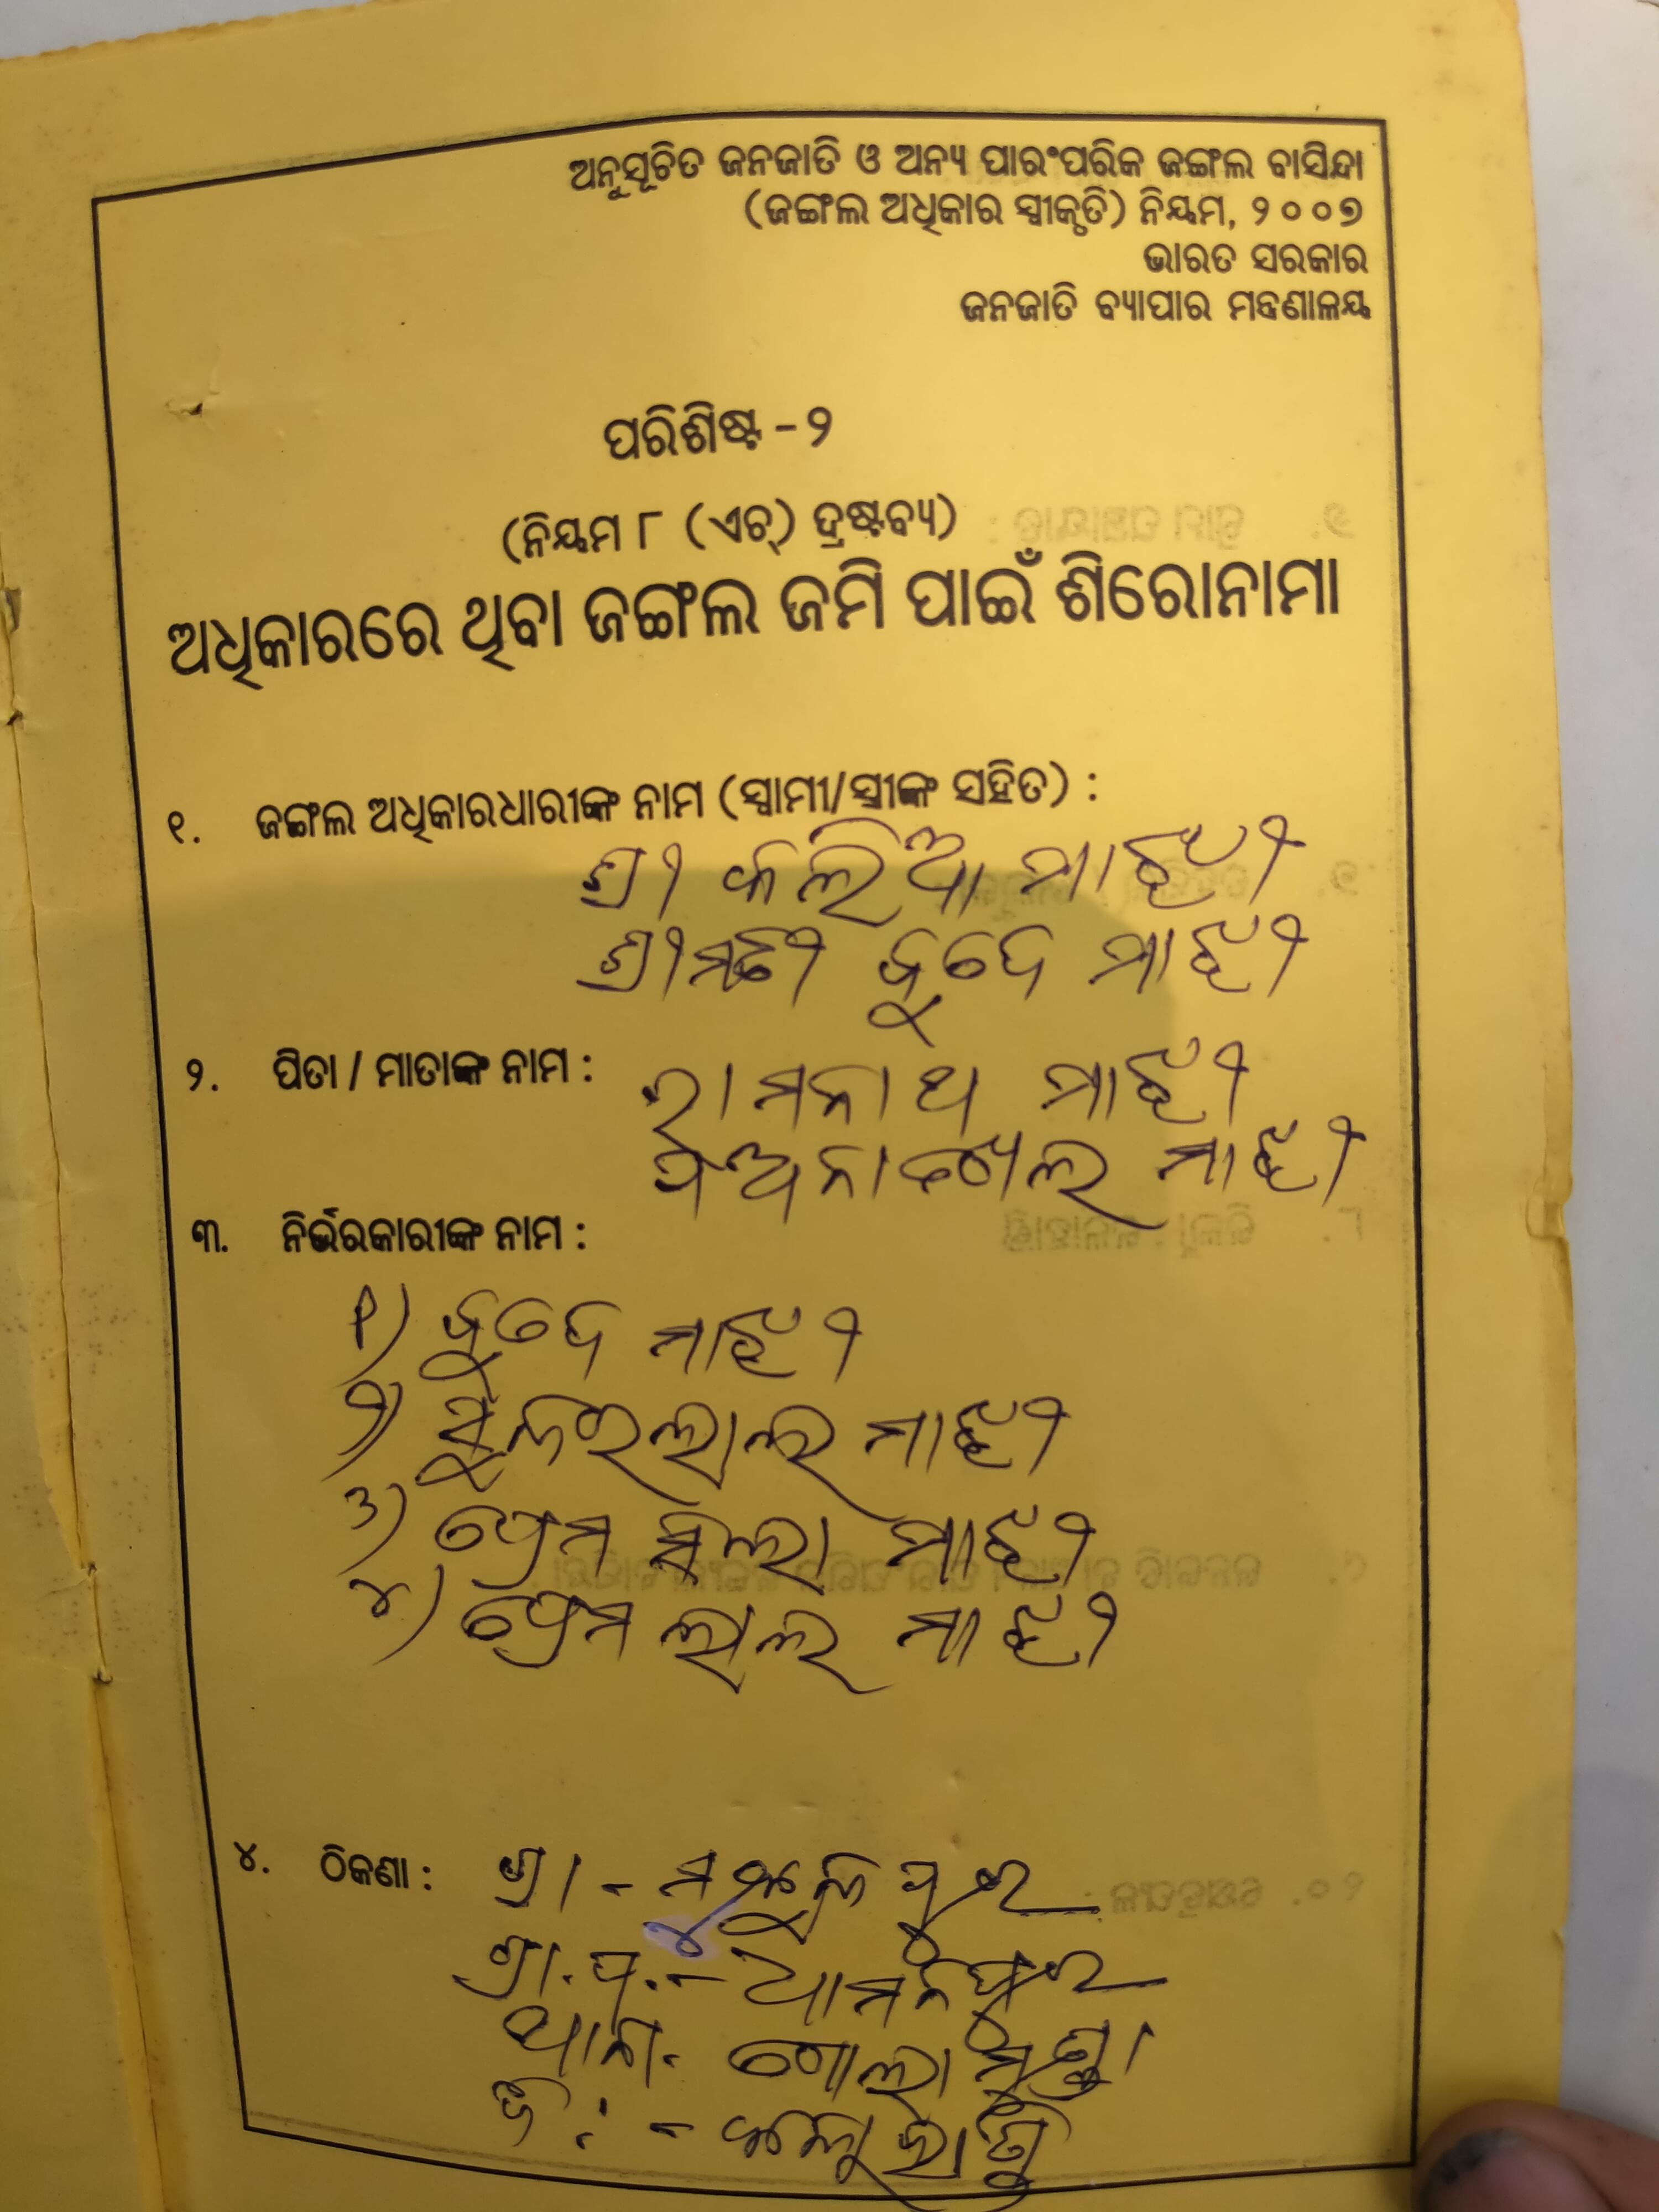 ଅନୁସୂଚିତ ଜନଜାତି ଓ ଅନ୍ୟ ପାରଂପରିକ ଜଙ୍ଗଲ ବାସିନ୍ଦା
(ଜଙ୍ଗଲ ଅଧିକାର ସ୍ୱୀକୃତି) ନିୟମ, ୨୦୦୭
ଭାରତ ସରକାର
ଜନଜାତି ବ୍ୟାପାର ମନ୍ତ୍ରଣାଳୟ
ପରିଶିଷ୍ଟ - ୨
(ନିୟମ ୮ (ଏଚ୍) ଦ୍ରଷ୍ଟବ୍ୟ)
ଅଧିକାରରେ ଥିବା ଜଙ୍ଗଲ ଜମି ପାଇଁ ଶିରୋନାମା
୧. ଜଙ୍ଗଲ ଅଧିକାରଧାରୀଙ୍କ ନାମ (ସ୍ୱାମୀ/ସ୍ତ୍ରୀଙ୍କ ସହିତ) :
ଶ୍ରୀ କଲିଆ ମାଝୀ
ଶ୍ରୀମତୀ ମାଝୀ
୨. ପିତା / ମାତାଙ୍କ ନାମ : ରାମନାଥ ମାଝୀ
ମାଝୀ
୩. ନିର୍ଭରକାରୀଙ୍କ ନାମ :
୧) ମାଝୀ
୨) ମାଝୀ
୩) ପ୍ରେମ ଶିଲା ମାଝୀ
୪) ପ୍ରେମ ଲାଲ ମାଝୀ
୪. ଠିକଣା : ଗ୍ରା -
ଗ୍ରା.ପ.-
ଥାନା- ଗୋଲାମୁଣ୍ଡା
ଜି : -